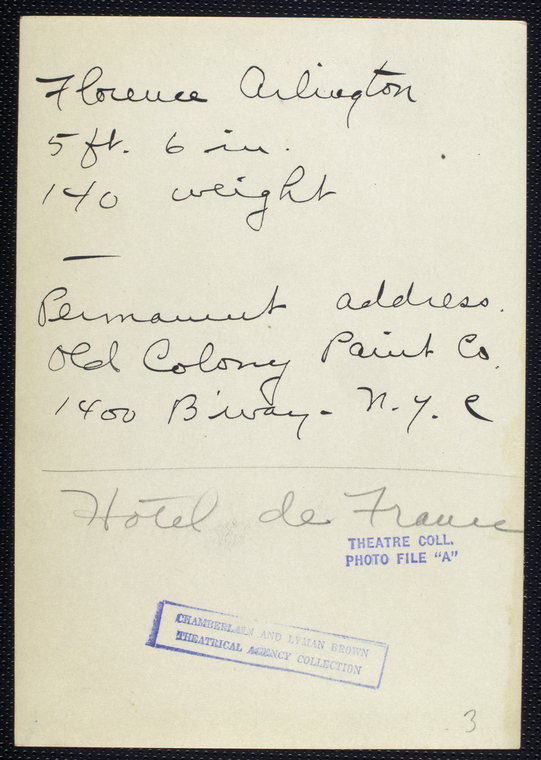 Florence Arlington
5 ft. 6 in.
140 weight
—
Permanent address.
Old Colony Paint Co.
1400 B'way - N.Y.C
Hotel de France
THEATRE COLL.
PHOTO FILE "A"
CHAMBERLAIN AND LYMAN BROWN
THEATRICAL AGENCY COLLECTION
3